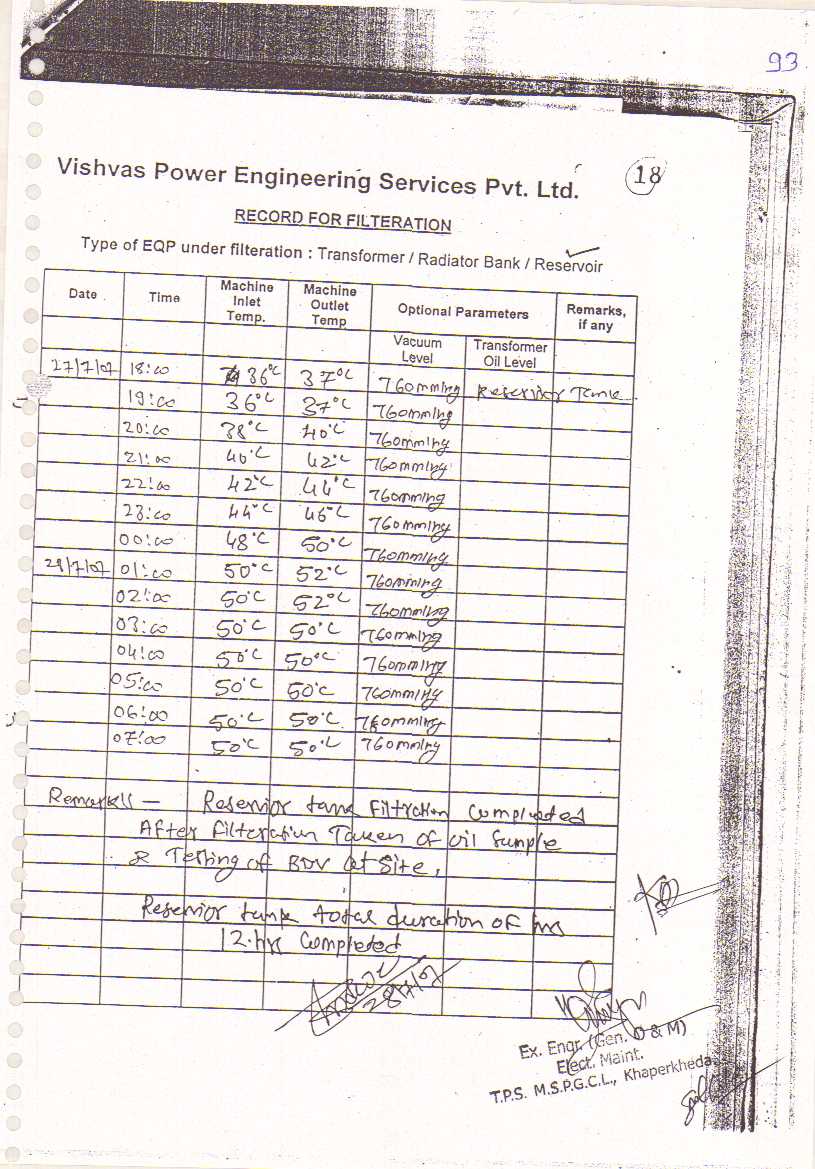 93
Vishvas Power Engineering Services Pvt. Ltd.
18
RECORD FOR FILTERATION
Type of EQP under filteration : Transformer / Radiator Bank / Reservoir
Date Time Machine Inlet Temp. Machine Outlet Temp Optional Parameters Remarks, if any
Vacuum Level Transformer Oil Level
27/7/07 18:00 36°C 37°C 760mmHg Reservior Tank
19:00 36°C 37°C 760mmHg
20:00 38°C 40°C 760mmHg
21:00 40°C 42°C 760mmHg
22:00 42°C 44°C 760mmHg
23:00 44°C 46°C 760mmHg
00:00 48°C 50°C 760mmHg
28/7/07 01:00 50°C 52°C 760mmHg
02:00 50°C 52°C 760mmHg
03:00 50°C 50°C 760mmHg
04:00 50°C 50°C 760mmHg
05:00 50°C 50°C 760mmHg
06:00 50°C 50°C 760mmHg
07:00 50°C 50°C 760mmHg
Reservior tank Filtration Completed
After filteration Taken of oil Sample
& Testing of BDV at Site,
Reservior tank total duration of
12.hrs Completed
28/7/07
Ex. Engr. (Gen. O & M)
Elect. Maint.
T.P.S. M.S.P.G.C.L., Khaperkheda